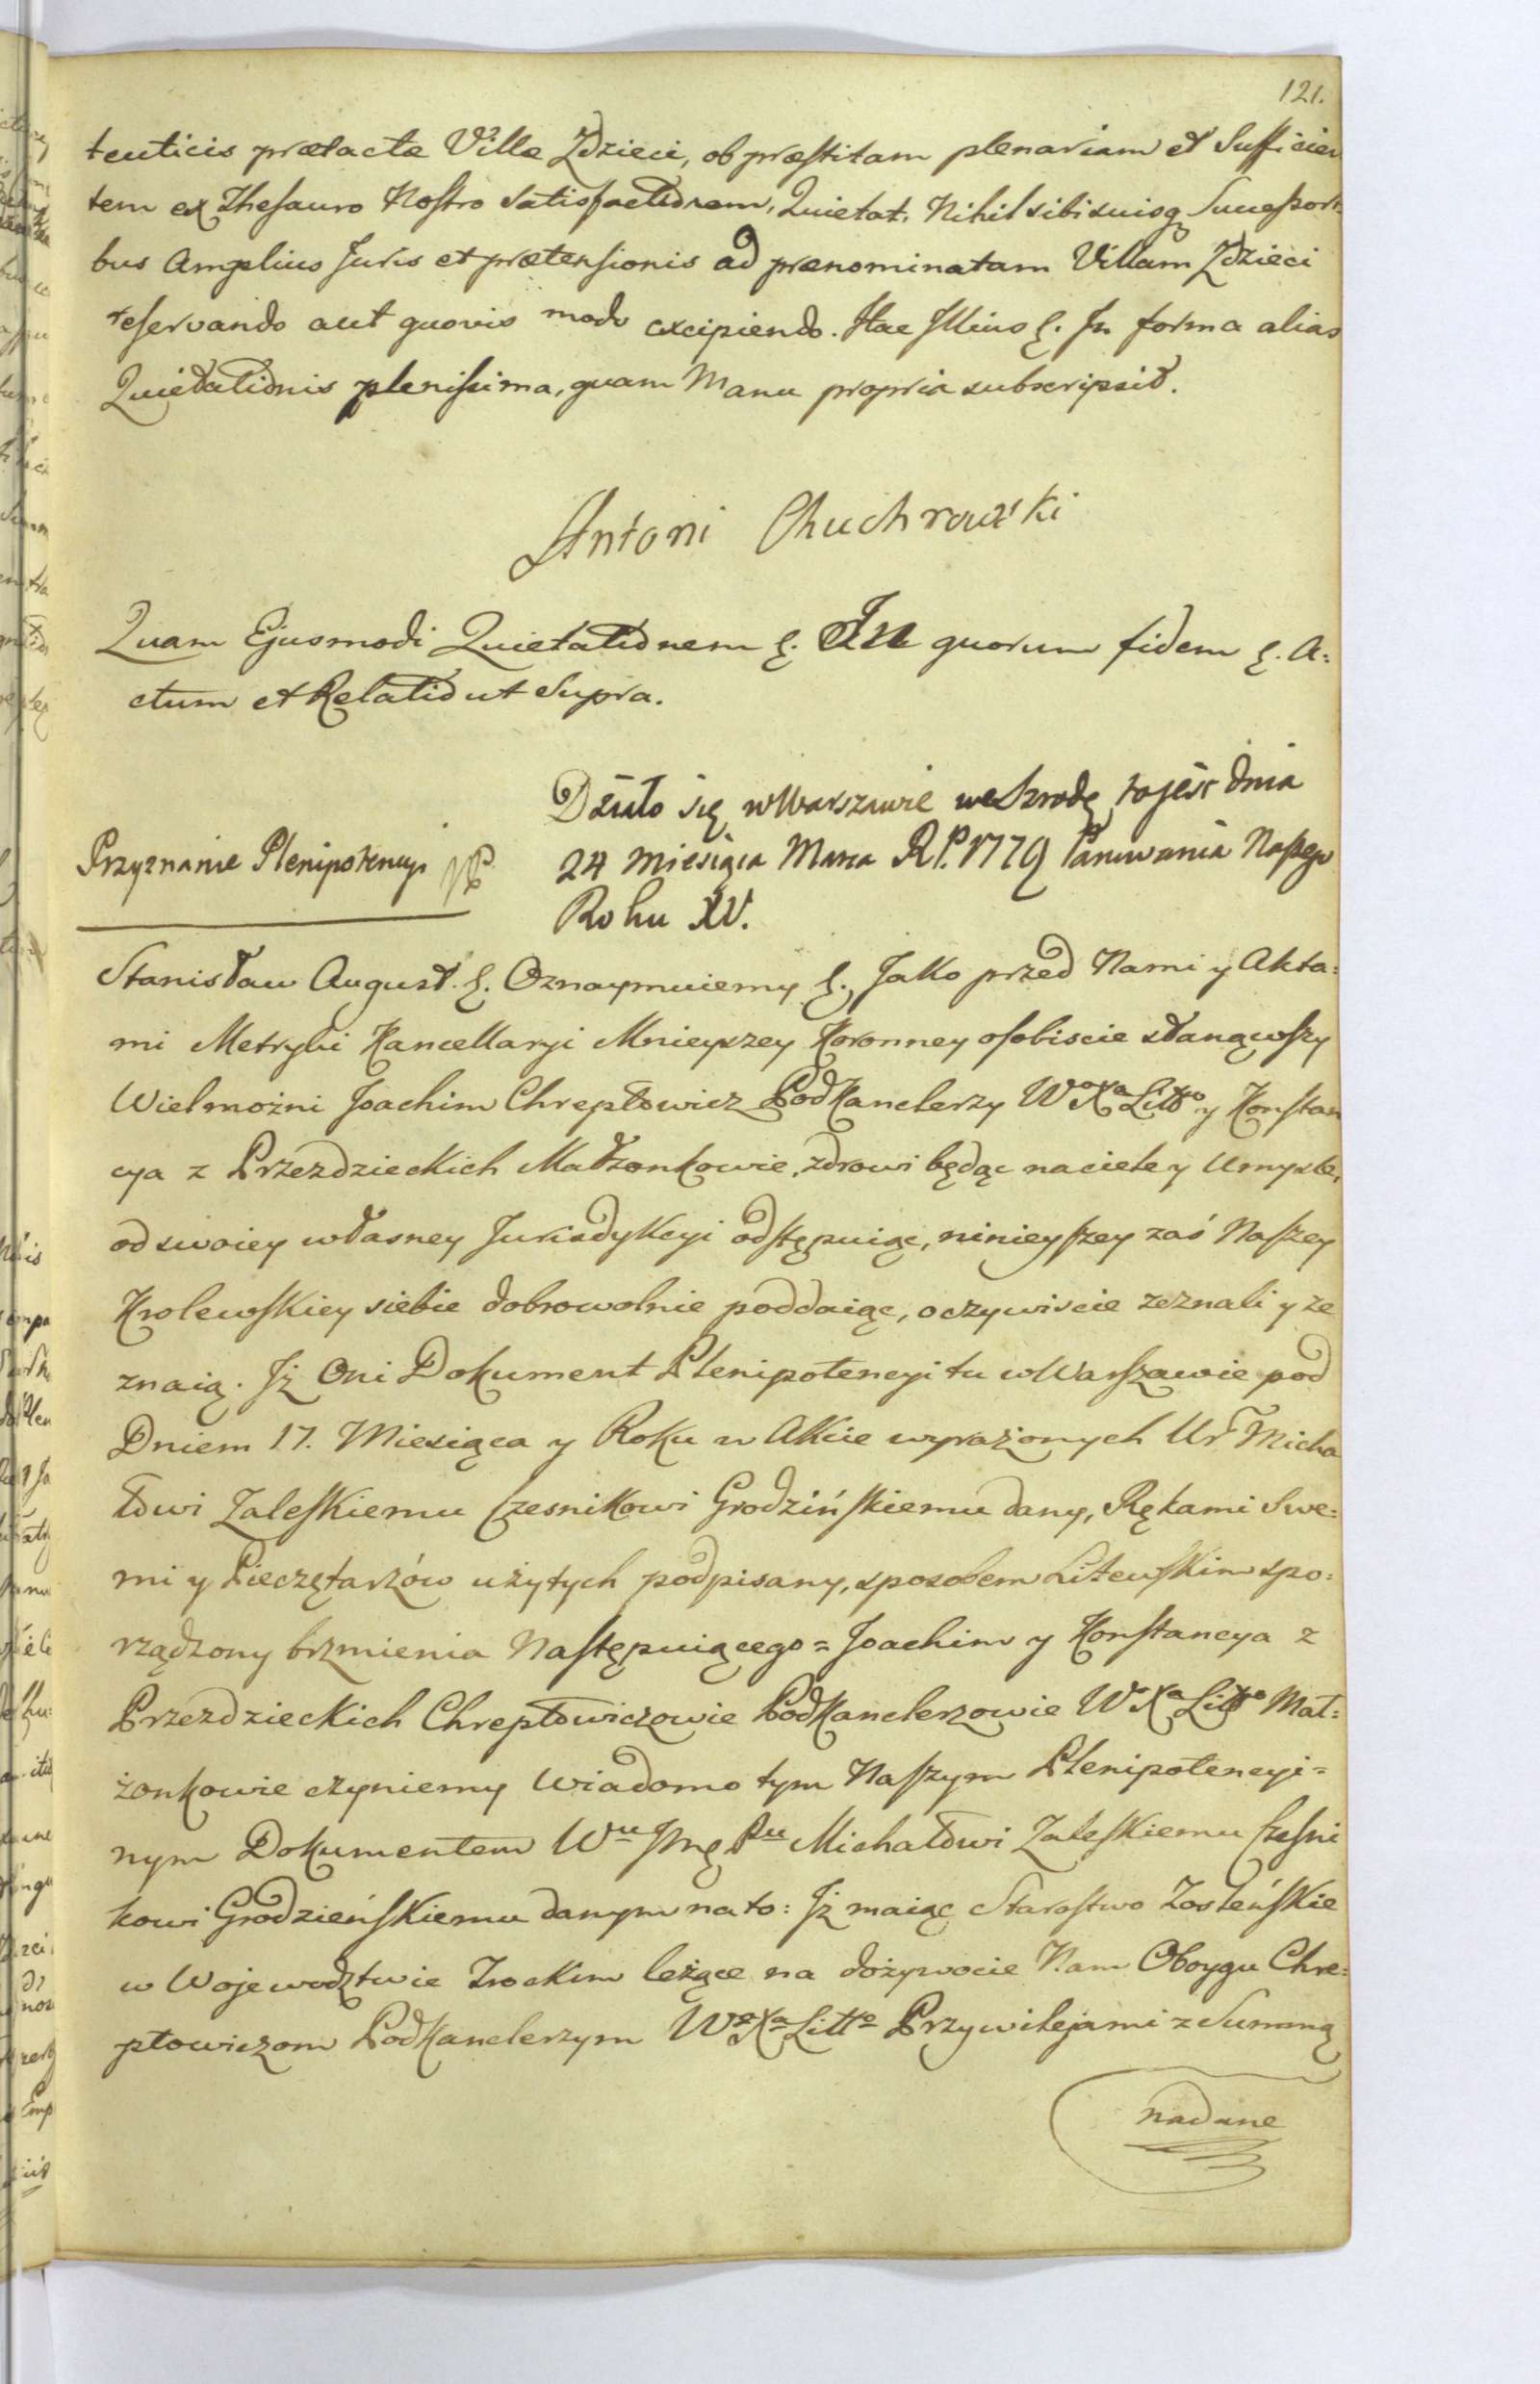 121.
tenticis prætactæ Villæ Zdzieci, ob præstitam plenariam et Sufficien
tem ex Thesauro Nostro Satisfactionem, Quietat, Nihil sibi suisq Successori
bus Amplius Juris et prætensionis ad prænominatam Villam Zdzieci
reservando aut quovis modo excipiendo. Hac Illius &. In forma alias
Quietationis plenissima, quam Manu propria subscripsit.
Antoni Chuchrowski
Quam Ejusmodi Quietationem &. In quorum fidem &. A:
ctum et Relatio ut Supra.
Działo się w Warszawie we Srzodę to jest dnia
24 Miesiąca Marca R P. 1779 Panowania Naszego
Roku XV.
Przyznanie Plenipotencyi
Stanisław August &. Oznaymuiemy &. Jako przed Nami y Akta:
mi Metryki Kancellaryi Mnieyszey Koronney osobiscie stanąwszy
Wielmożni Joachim Chreptowicz Podkanclerzy Wo Xa Litto y Konstan
cya z Przezdzieckich Małżonkowie, zdrowi będąc na ciele y Umyśle,
od swoiey własney Jurisdykcyi odstępuiąc, ninieyszey zaś Naszey
Krolewskiey siebie dobrowolnie poddaiąc, oczywiscie zeznali y ze
znaią. Jż Oni Dokument Plenipotencyi tu w Warszawie pod
Dniem 17. Miesiąca y Roku w Akcie wyrażonych Ur. Micha
łowi Zaleskiemu Czesnikowi Grodzińskiemu dany, Rękami Swe:
mi y Pieczętarzów użytych podpisany, sposobem Litewskim spo:
rządzony brzmienia Następuiącego = Joachim y Konstancya z
Przezdzieckich Chreptowiczowie Podkanclerzowie Wo Xa Litto Mał:
żonkowie czyniemy wiadomo tym Naszym Plenipotencyi=
nym Dokumentem Wu Jmę Pu Michałowi Zaleskiemu Czesni
kowi Grodzieńskiemu danym na to: Jż maiąc Starostwo Zosleńskie
w Wojewodztwie Trockim leżące na dożywocie Nam Oboygu Chre=
ptowiczom Podkanclerzym Wo Xa Litto Przywilejami z Summą
nadane